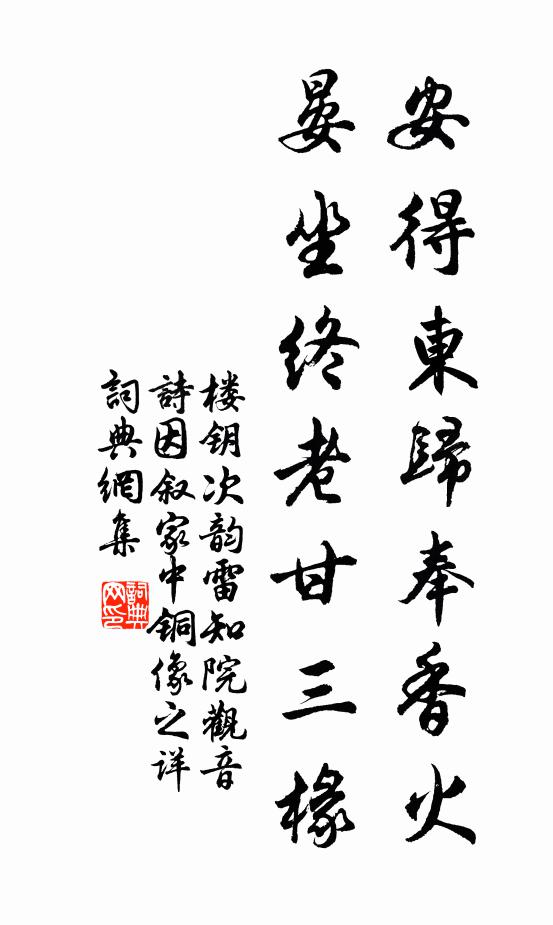 安得東歸奉香火
晏坐終老甘三椽
楼钥次韵雷知院觀音
詩因叙家中銅像之详
詞典網集
詞典
网印